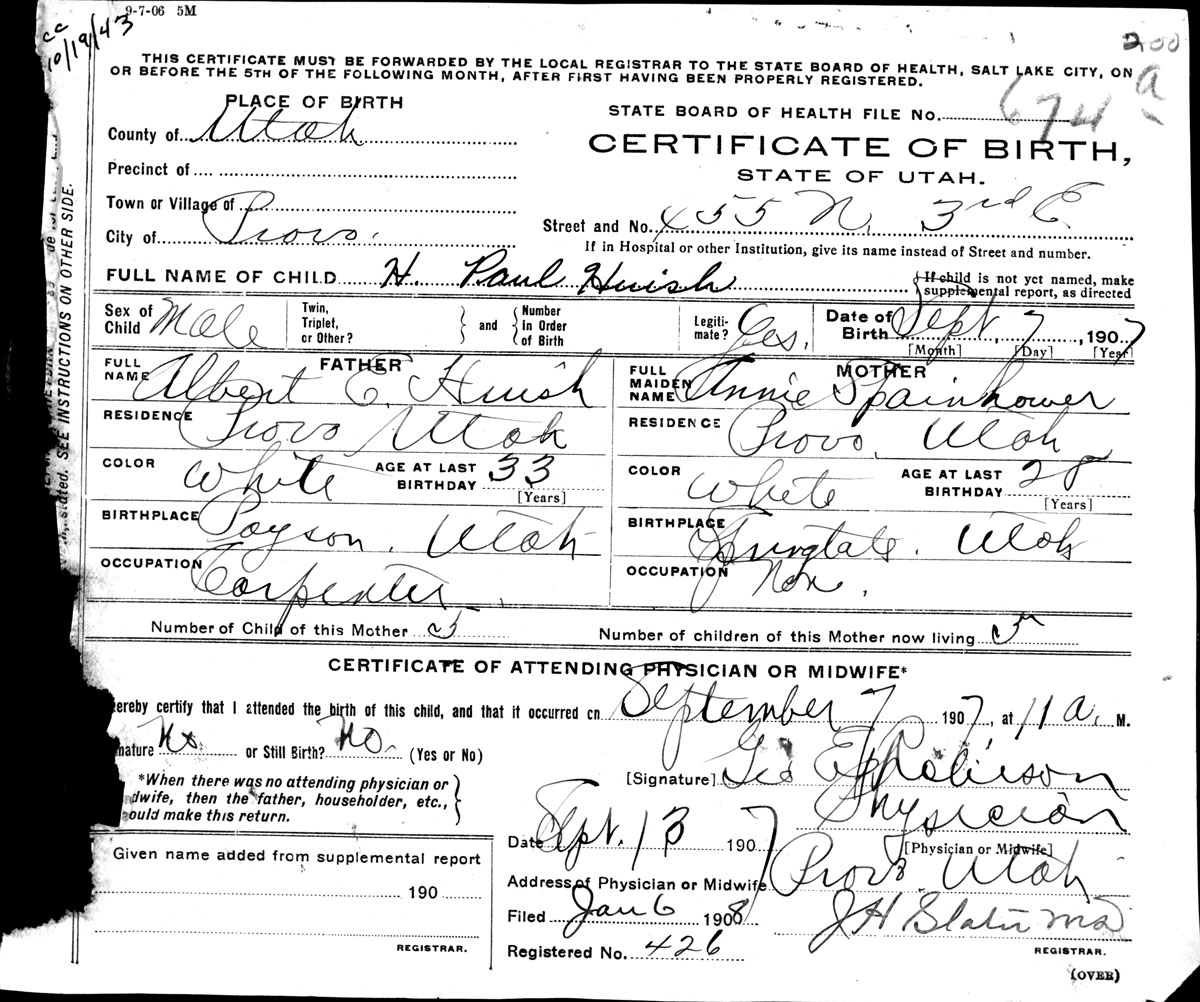 9-7-06 5M
cc
10/19/43
200
a
THIS CERTIFICATE MUST BE FORWARDED BY THE LOCAL REGISTRAR TO THE STATE BOARD OF HEALTH, SALT LAKE CITY, ON
OR BEFORE THE 5TH OF THE FOLLOWING MONTH, AFTER FIRST HAVING BEEN PROPERLY REGISTERED.
PLACE OF BIRTH
County of Utah
Precinct of
Town or Village of
City of Provo.
STATE BOARD OF HEALTH FILE No. 674
CERTIFICATE OF BIRTH,
STATE OF UTAH.
Street and No. 455 N. 3rd E
If in Hospital or other Institution, give its name instead of Street and number.
FULL NAME OF CHILD H. Paul Huish
If child is not yet named, make
supplemental report, as directed
Sex of Child Male
Twin, Triplet, or Other?
and
Number in Order of Birth
Legiti-mate? Yes.
Date of Birth Sept. 7, 1907
[Month] [Day] [Year]
FATHER
FULL NAME Albert E. Huish
RESIDENCE Provo Utah
COLOR White AGE AT LAST BIRTHDAY 33
[Years]
BIRTHPLACE Payson, Utah
OCCUPATION Carpenter.
MOTHER
FULL MAIDEN NAME Annie Spainhower
RESIDENCE Provo, Utah
COLOR White AGE AT LAST BIRTHDAY 28
[Years]
BIRTHPLACE Utah
OCCUPATION
Number of Child of this Mother 5
Number of children of this Mother now living 5
CERTIFICATE OF ATTENDING PHYSICIAN OR MIDWIFE*
ereby certify that I attended the birth of this child, and that it occurred on September 7 1907, at 11 a. M.
mature No or Still Birth? No. (Yes or No)
*When there was no attending physician or
dwife, then the father, householder, etc.,
ould make this return.
[Signature] Geo E Robison
Physician
[Physician or Midwife]
Date Sept. 13 1907
Address of Physician or Midwife Provo Utah
Filed Jan 6 1908
J H Slater MD
REGISTRAR.
Registered No. 426
(OVER)
Given name added from supplemental report
190
REGISTRAR.
stated. SEE INSTRUCTIONS ON OTHER SIDE.